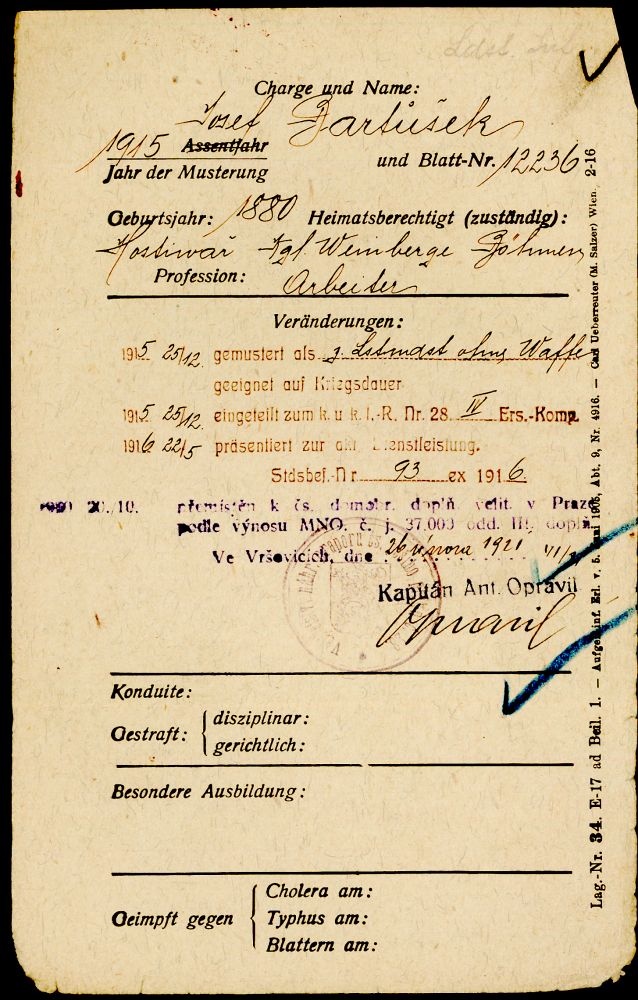 Ldst. Inf.
Charge und Name:
Josef Bartůšek
1915 Assentjahr
Jahr der Musterung
und Blatt-Nr. 12236
Geburtsjahr: 1880 Heimatsberechtigt (zuständig):
Hostiwař Kgl. Weinberge Böhmen
Profession: Arbeiter
Veränderungen:
1915 25/12 gemustert als z. Lstmdst ohne Waffe
geeignet auf Kriegsdauer
1915 25/12 eingeteilt zum k. u. k. I.-R. Nr. 28 IV Ers.-Komp.
1916 22/5 präsentiert zur akt. Dienstleistung.
Stdsbef.-Nr. 93 ex 1916.
1920 20./10. přemístěn k čs. domobr. doplň. velit. v Praze
podle výnosu MNO. č. j. 37.000 odd. III. doplň.
Ve Vršovicích, dne 26 února 1921
Kapitán Ant. Opravil
Opravil
Konduite:
Gestraft: disziplinar:
gerichtlich:
Besondere Ausbildung:
Geimpft gegen Cholera am:
Typhus am:
Blattern am:
Lag.-Nr. 34. E-17 ad Beil. 1. — Aufgel. Inf. Erl. v. 5. Juni 1906, Abt. 9, Nr. 4916. — Carl Ueberreuter (M. Salzer) Wien. 2-16